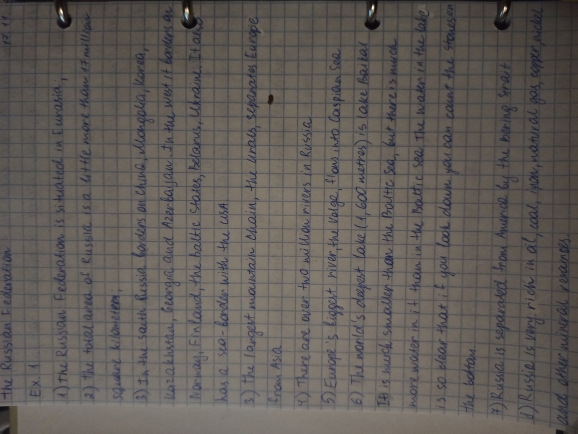 The Russian Federation 17.11
Ex. 1
1) The Russian Federation is situated in Eurasia,
2) The total area of Russia is a little more than 17 million
square kilometres,
3) In the south Russia borders on China, Mongolia, Korea,
Kazakhstan, Georgia and Azerbaijan. In the west it borders on
Norway, Finland, the Baltic States, Belarus, Ukraine. It also
has a sea-border with the USA
3) The largest mountain chain, the Urals, separates Europe
from Asia
4) There are over two million rivers in Russia
5) Europe's biggest river, the Volga, flows into Caspian Sea
6) The world's deepest lake (1,600 metres) is Lake Baikal
It is much smaller than the Baltic Sea, but there is much
more water in it than in the Baltic Sea. The water in the lake
is so clear that if you look down you can count the stones on
the bottom.
7) Russia is separated from America by the Bering Strait
8) Russia is very rich in oil, coal, iron, natural gas, copper, nickel
and other mineral resources,